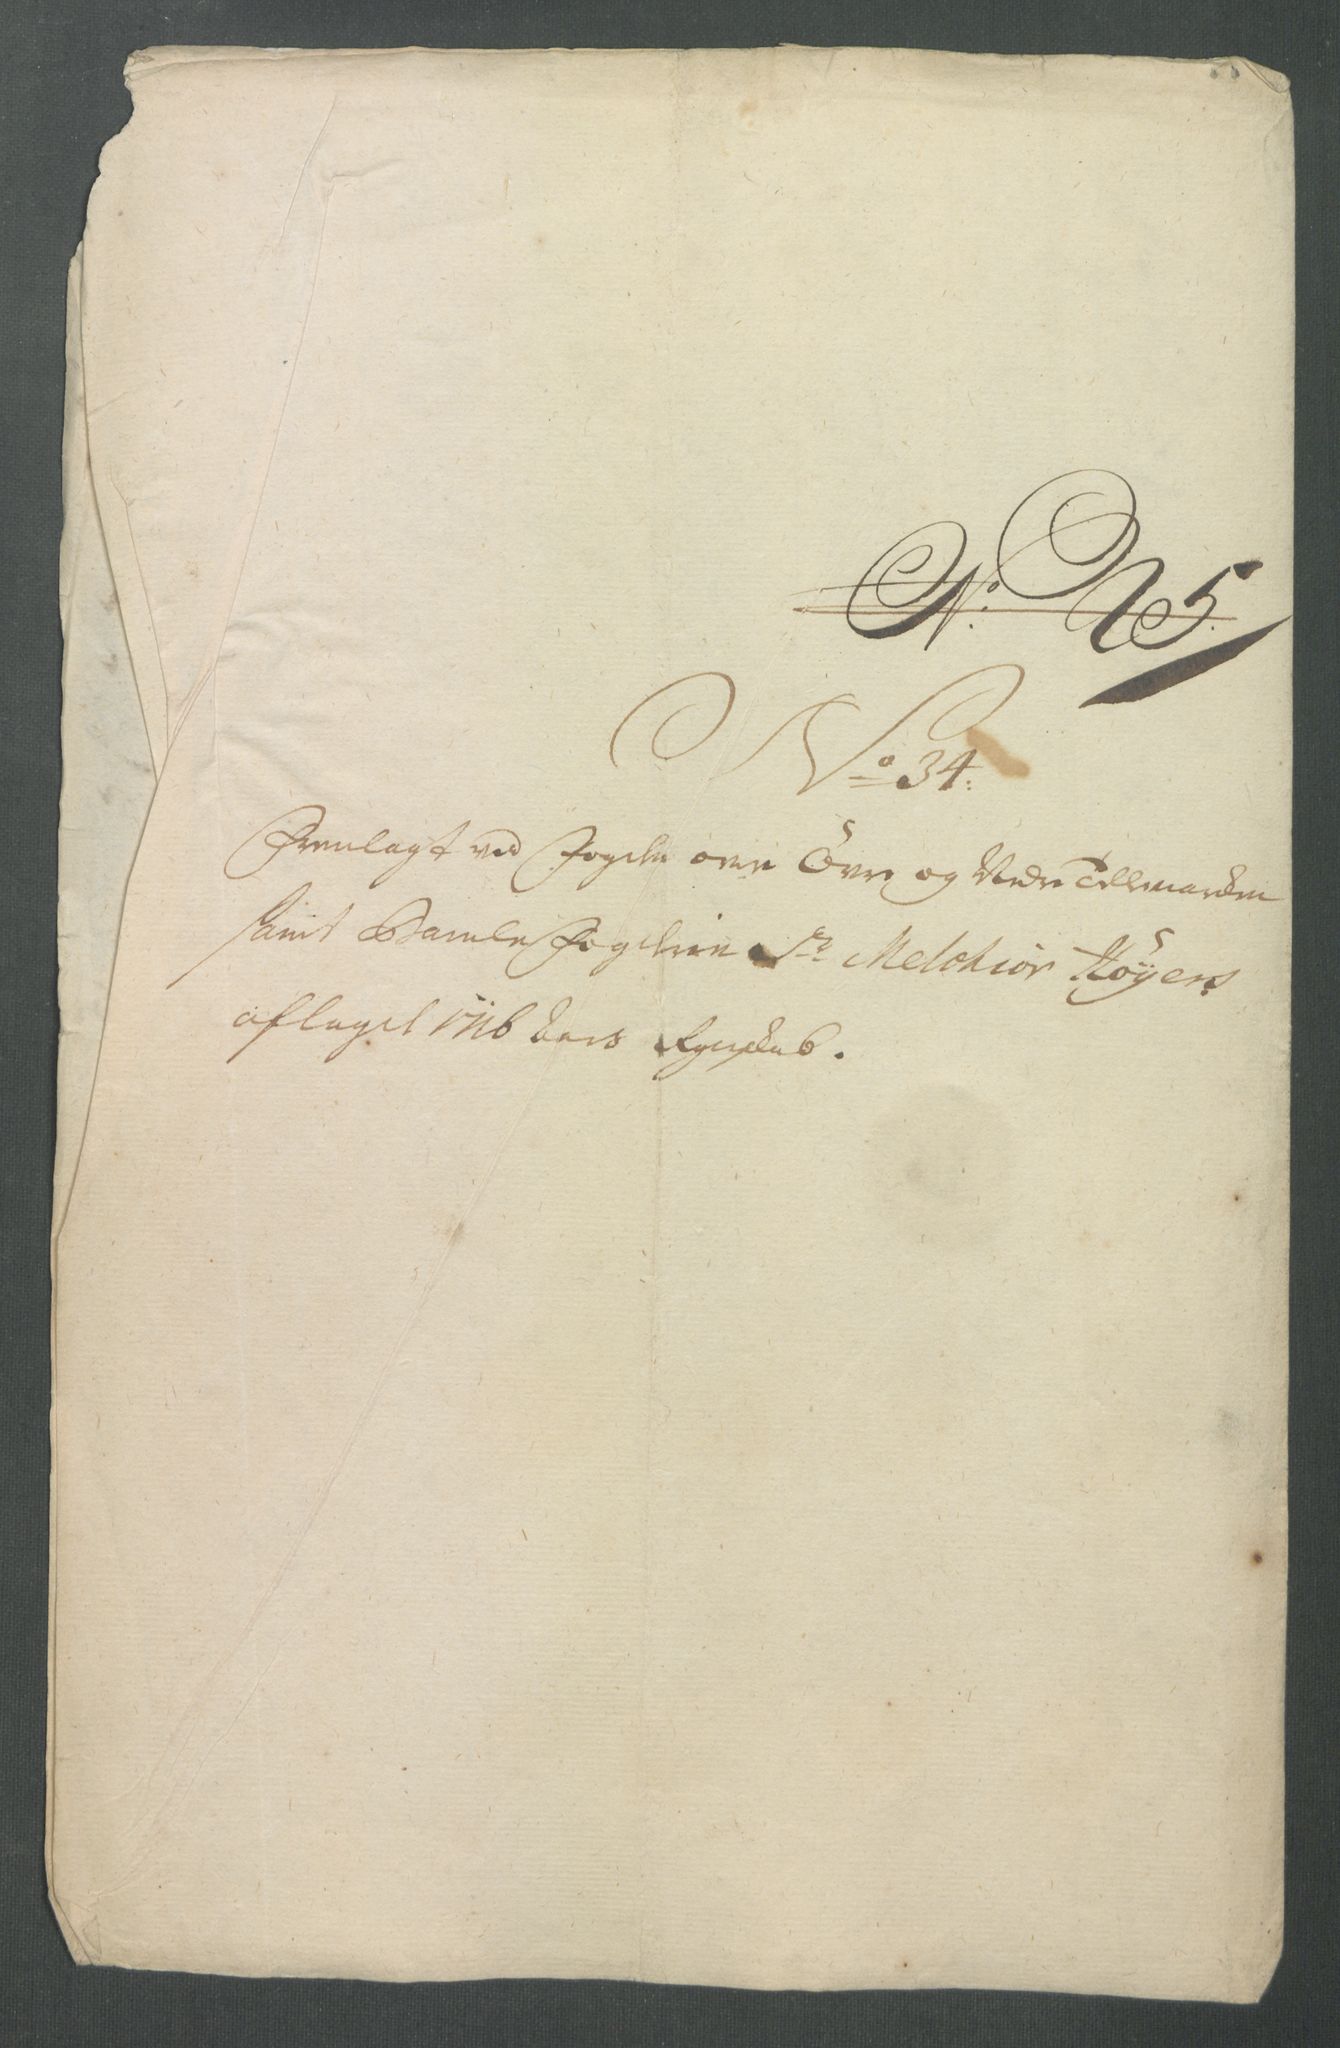 No N 5.
No 34:
Fremlagt ved Fogden over Övre og Nedre Tellemarcken
samt Bamle Fogderie Sr Melchior Höÿers
aflagde 1716 Aars Regnskab.